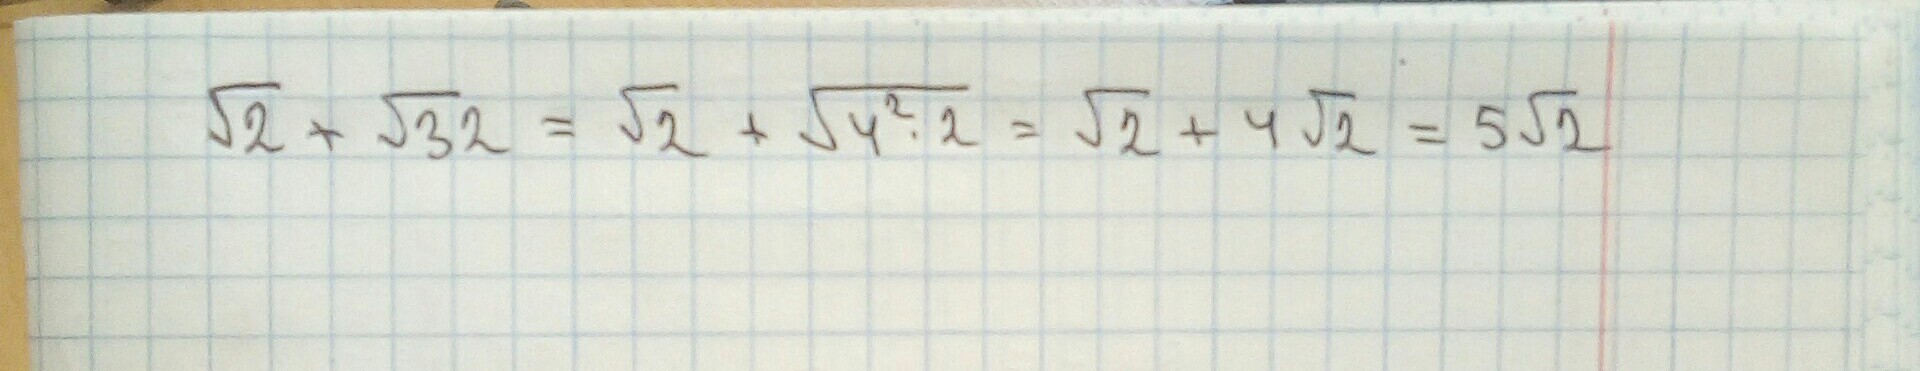 √2 + √32 = √2 + √4²·2 = √2 + 4√2 = 5√2